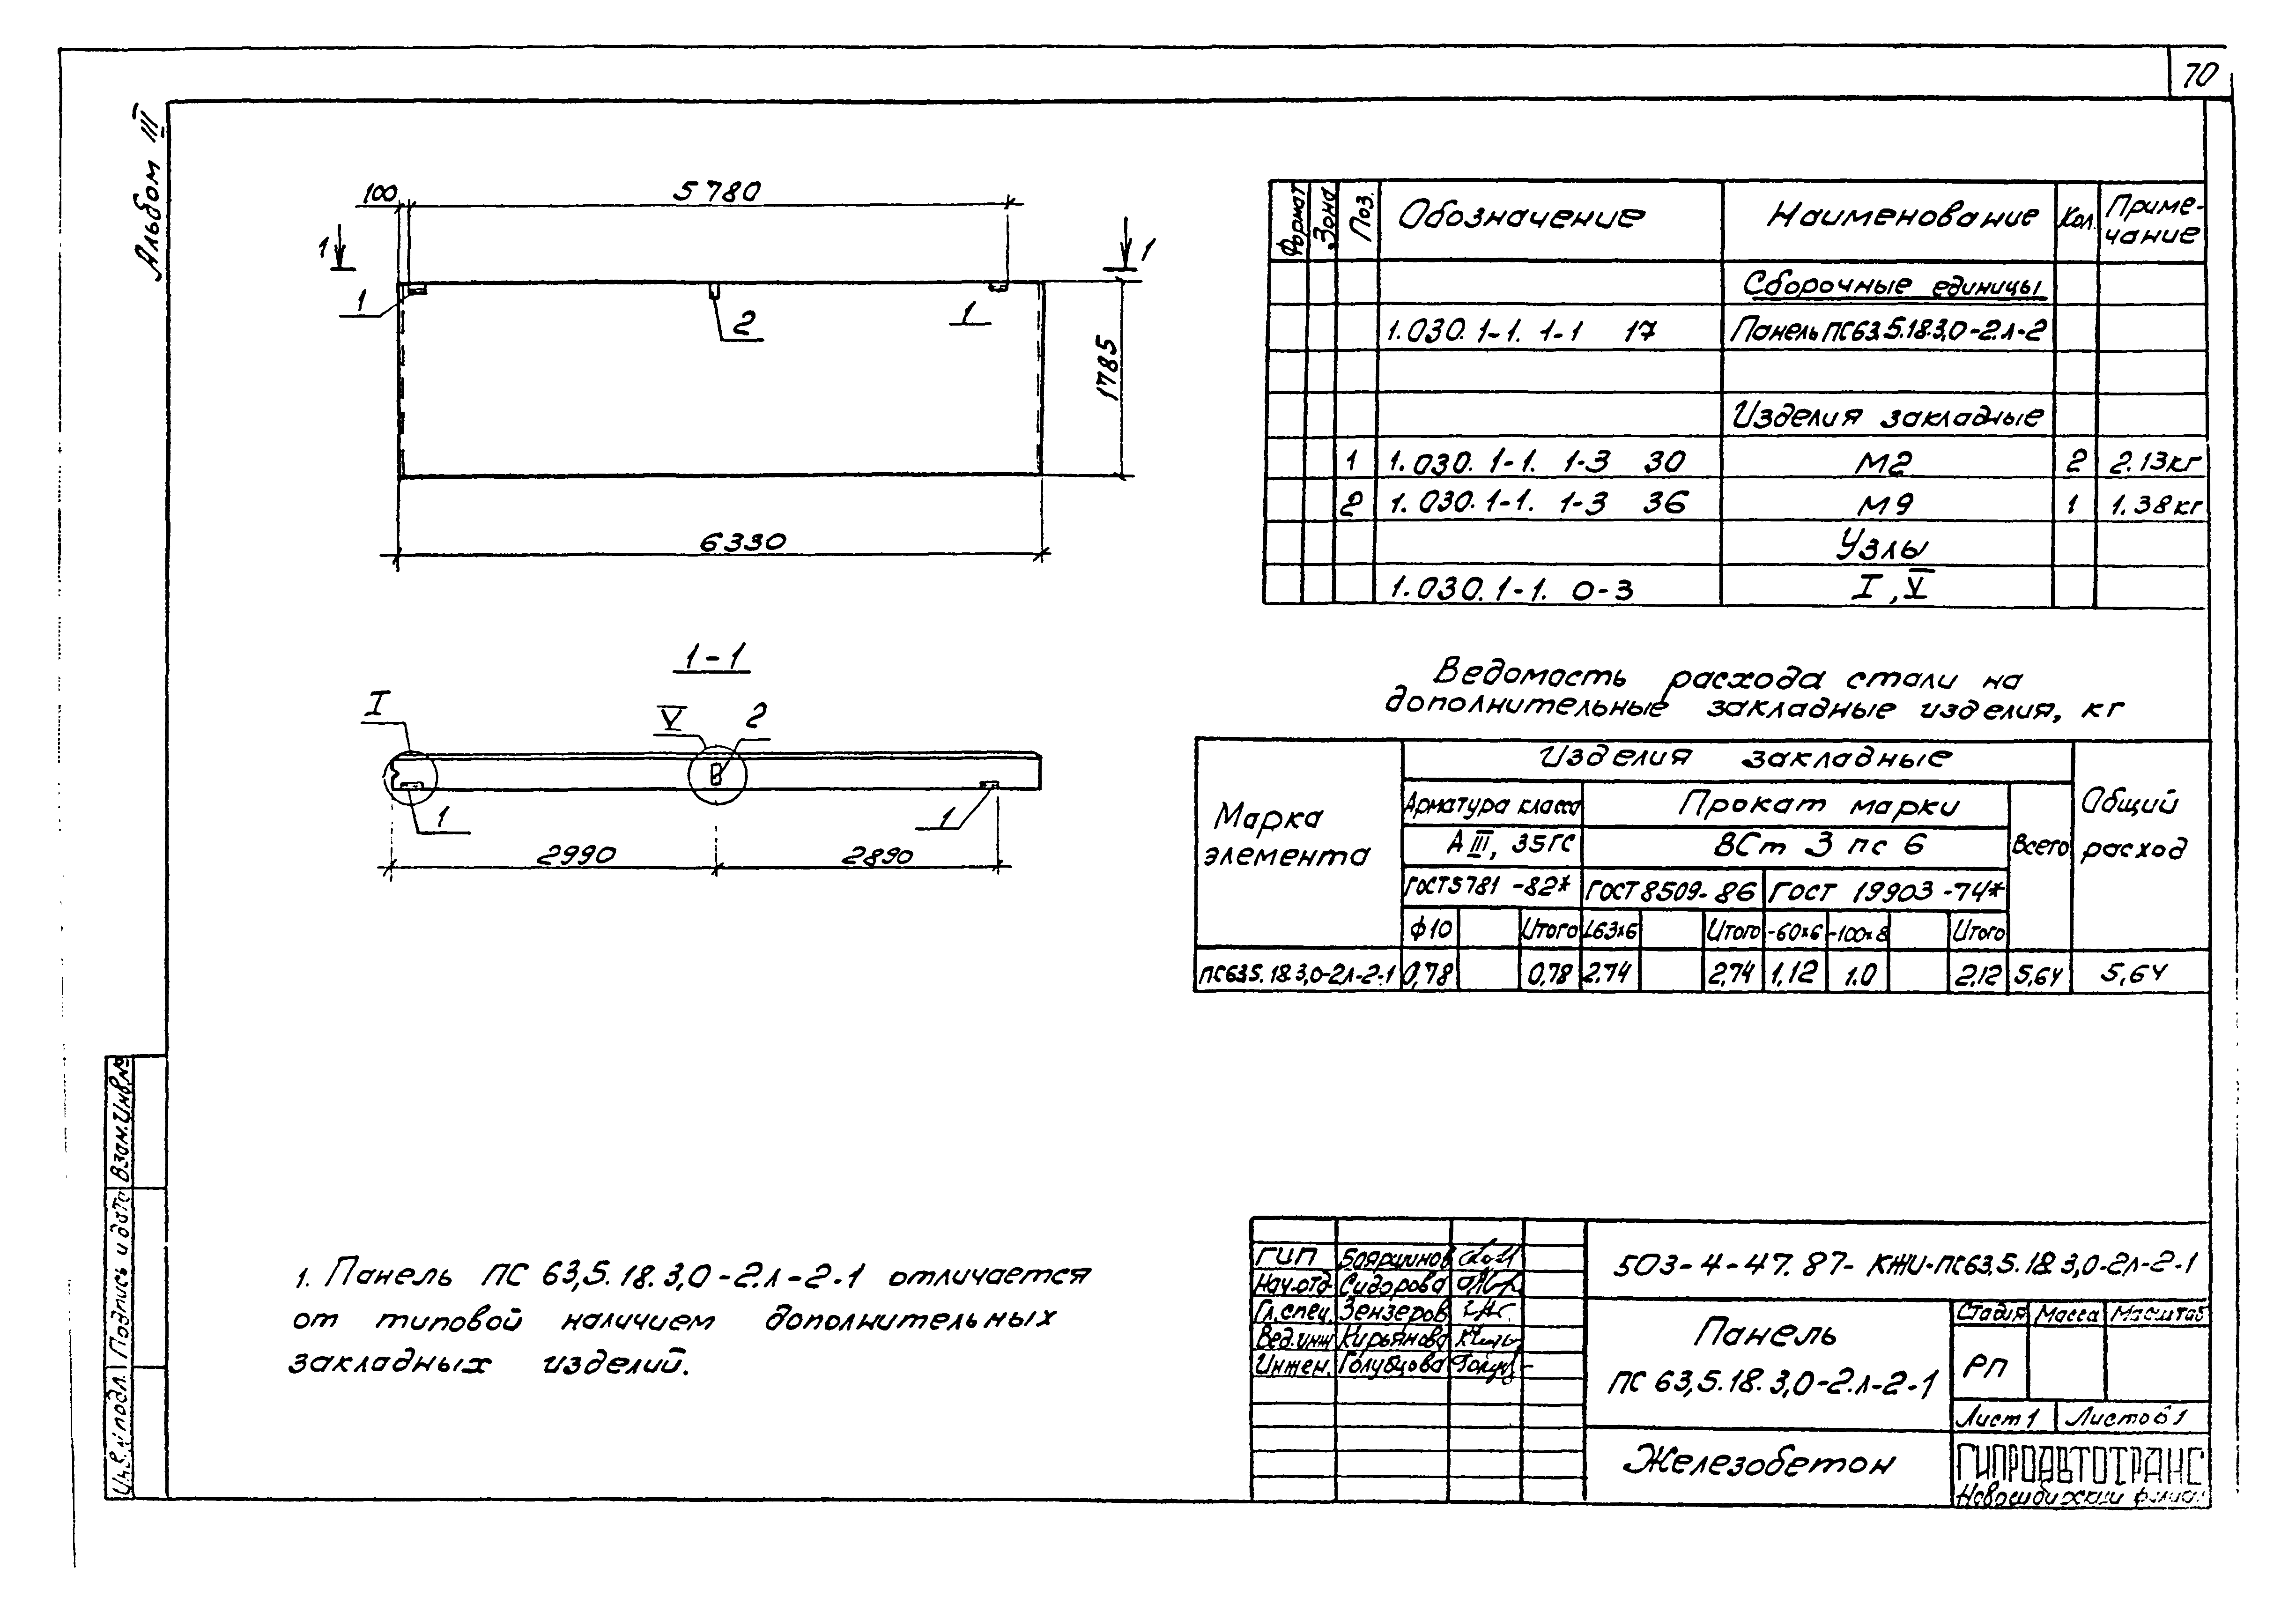 70
Альбом III
100 5780
1 1
1 2 1
1785
6330
1-1
I V 2
1 1
2990 2890
Формат Зона Поз. Обозначение Наименование Кол. Приме-
чание
Сборочные единицы
1.030.1-1. 1-1 17 Панель ПС63.5.18.3,0-2.л-2
Изделия закладные
1 1.030.1-1. 1-3 30 М2 2 2.13кг
2 1.030.1-1. 1-3 36 М9 1 1.38кг
Узлы
1.030.1-1. 0-3 I, V
Ведомость расхода стали на
дополнительные закладные изделия, кг
Марка
элемента
Изделия закладные
Общий
расход
Арматура класса Прокат марки
А III, 35ГС ВСт 3 пс 6 Всего
ГОСТ 5781-82* ГОСТ 8509-86 ГОСТ 19903-74*
ф10 Итого L63x6 Итого -60x6 -100x8 Итого
ПС63.5.18.3,0-2л-2-1 0,78 0,78 2.74 2,74 1,12 1.0 2,12 5,64 5,64
1. Панель ПС 63,5.18.3,0-2.л-2-1 отличается
от типовой наличием дополнительных
закладных изделий.
Взам.Инв.№
Подпись и дата
Инв.№ подл.
ГИП Бояршинов
Нач.отд. Сидорова
Гл.спец. Зензеров
Вед.инж Кирьянова
Инжен. Голубцова
503-4-47.87-КЖИ-ПС63,5.18.3,0-2л-2-1
Панель
ПС 63,5.18.3,0-2.л-2-1
Стадия Масса Масштаб
РП
Лист 1 Листов 1
Железобетон
ГИПРОАВТОТРАНС
Новосибирский филиал